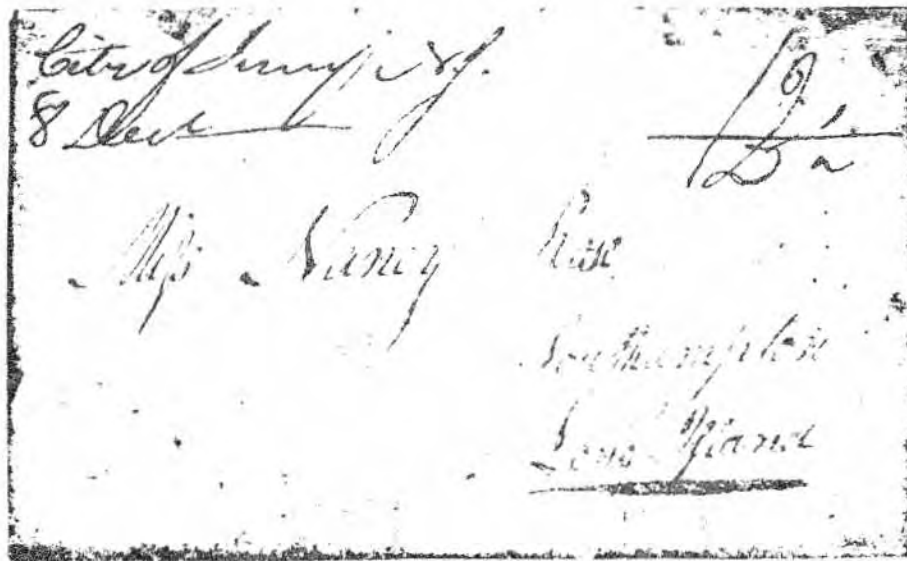 City of Jersey N J.
8 Dec
12½
Miss Nancy
Southampton
Long Island